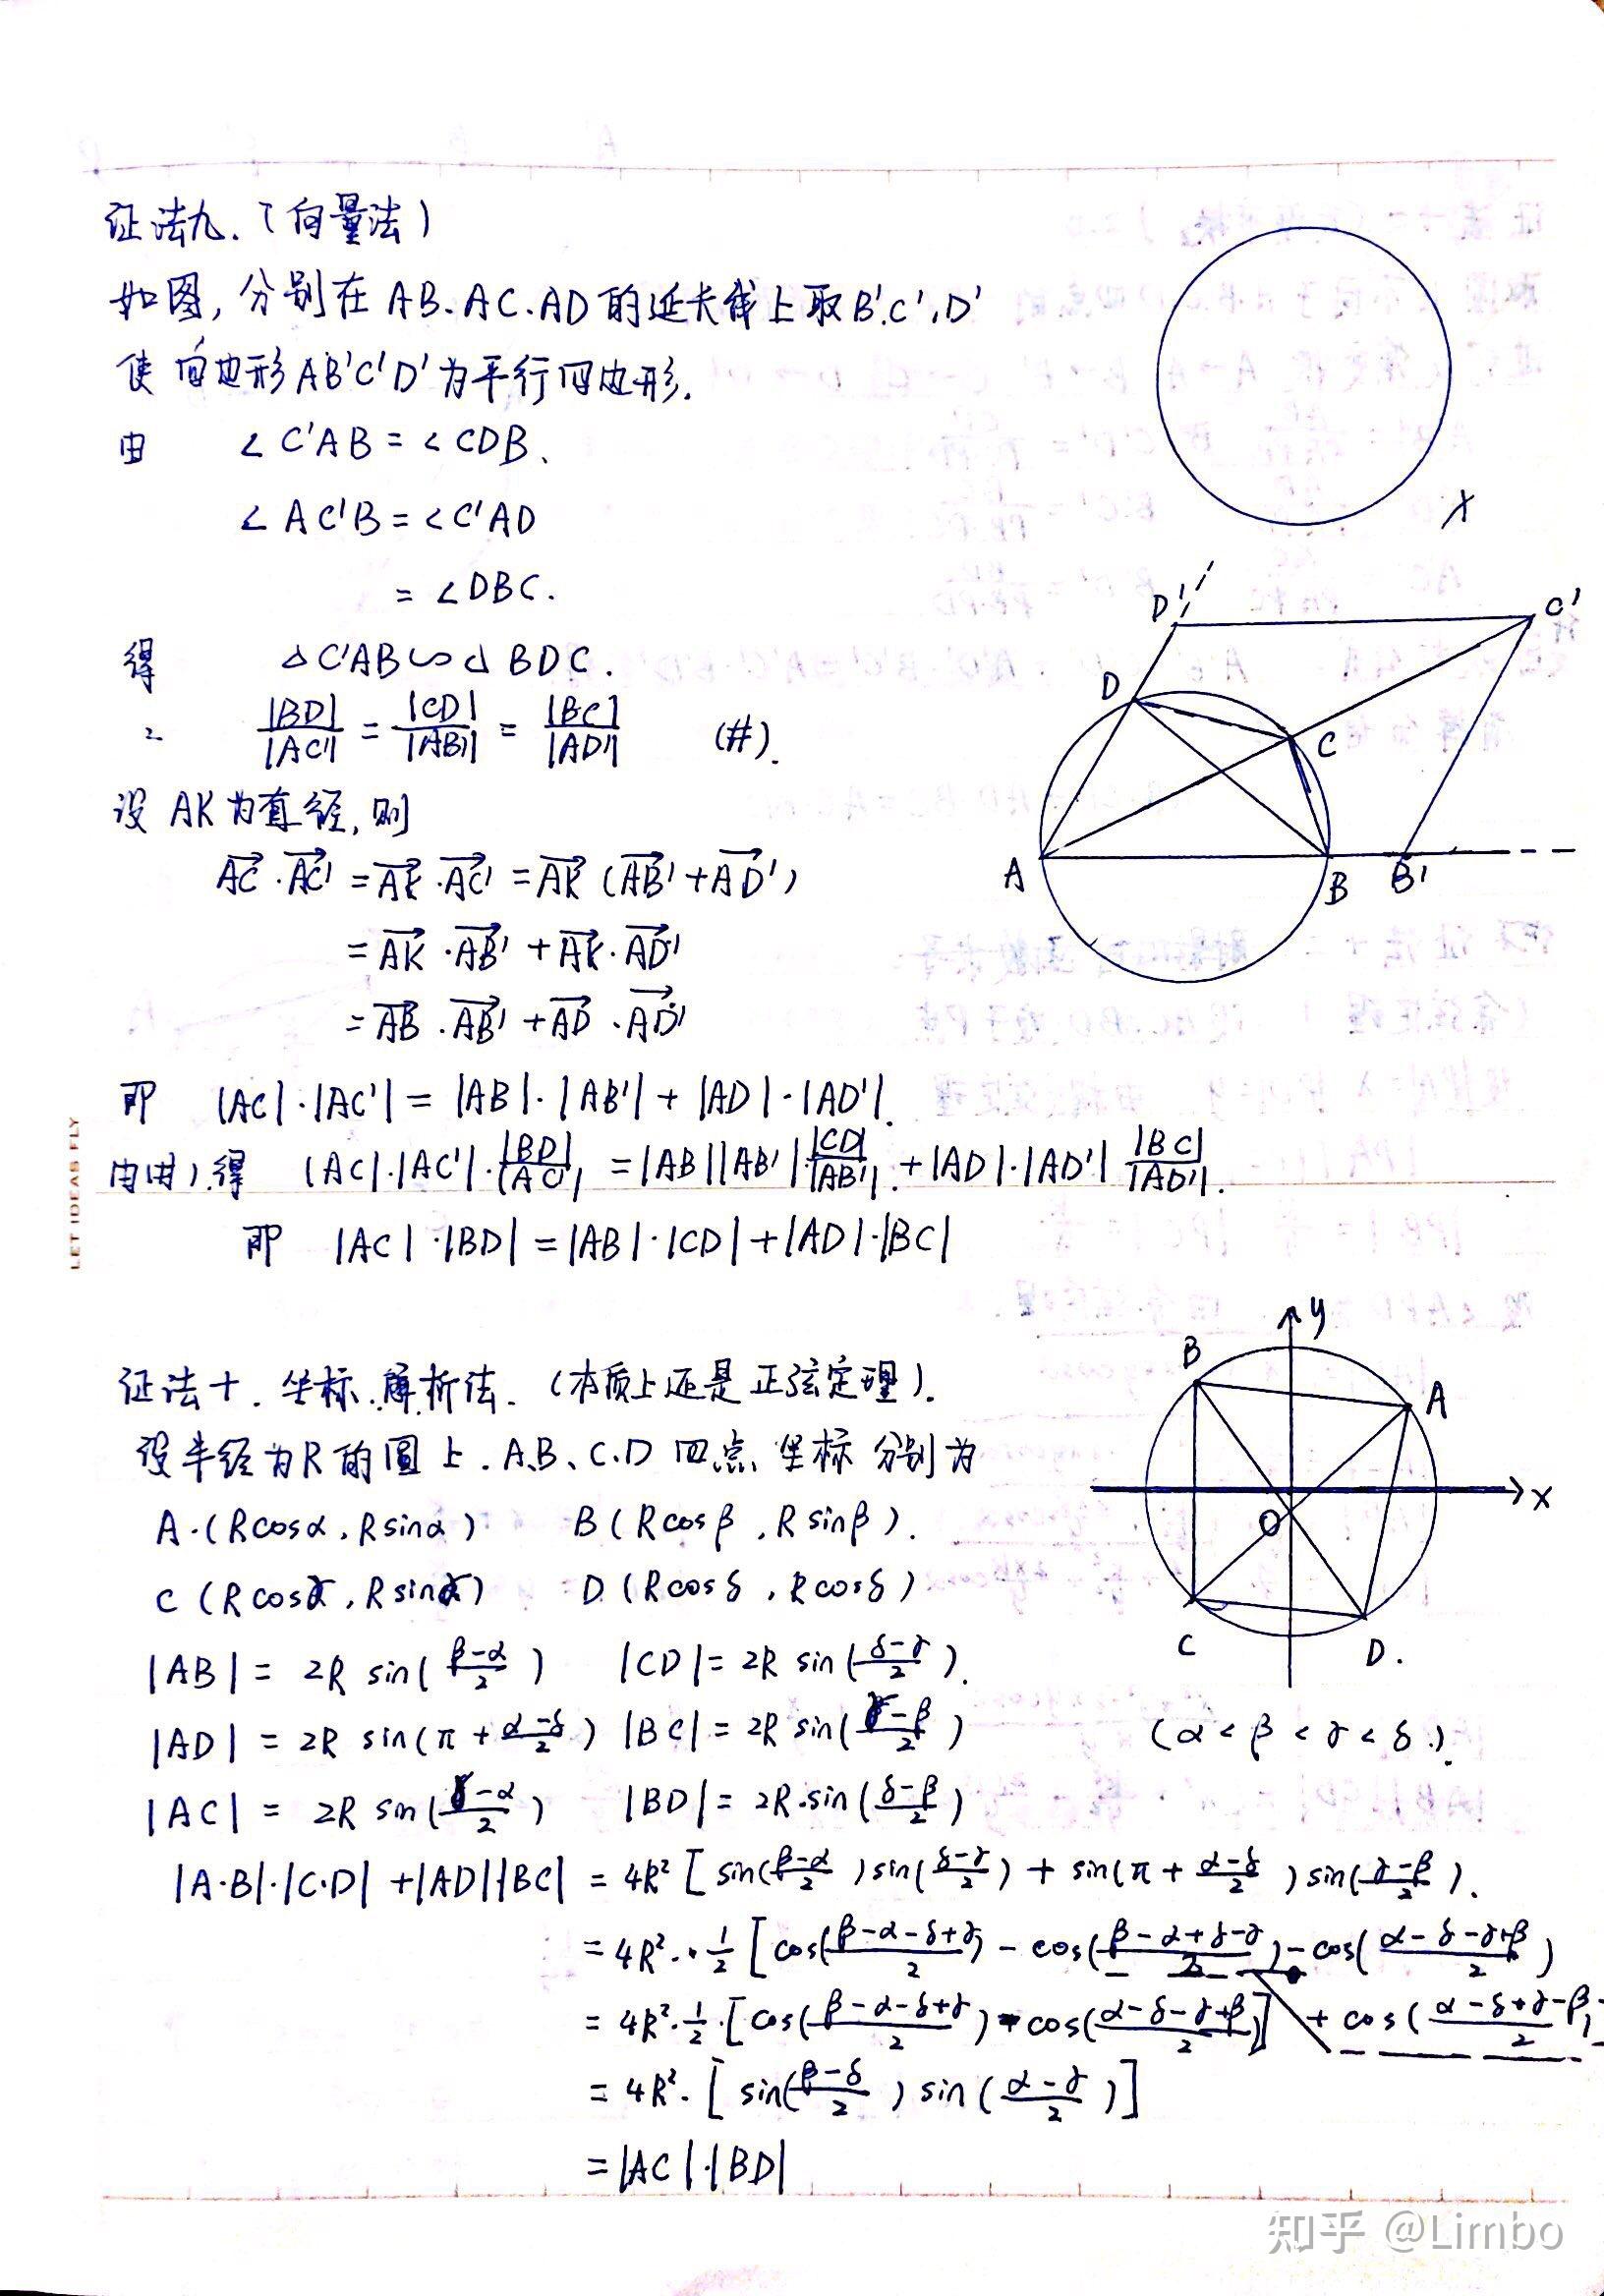 证法九.(向量法)
如图,分别在 AB.AC.AD 的延长线上取B'.C'.D'
使四边形AB'C'D'为平行四边形.
由 ∠C'AB=∠CDB、
∠AC'B=∠C'AD
=∠DBC.
得 △C'AB∽△BDC.
∴ |BD|/|AC'| = |CD|/|AB'| = |BC|/|AD'| (#).
设 AK为直径,则
AC→·AC'→=AK→·AC'→=AK→(AB'→+AD'→)
=AK→·AB'→+AK→·AD'→
=AB→·AB'→+AD→·AD'→
即 |AC|·|AC'|=|AB|·|AB'|+|AD|·|AD'|.
由(#).得 |AC|·|AC'|·|BD|/|AC'| =|AB||AB'||CD|/|AB'|.+|AD|·|AD'| |BC|/|AD'|.
即 |AC|·|BD|=|AB|·|CD|+|AD|·|BC|
X
D'
C'
D
C
A
B
B'
LET IDEAS FLY
证法十.坐标.解析法.(本质上还是正弦定理).
设半径为R的圆上.A.B、C.D 四点坐标分别为
A.(Rcosα,Rsinα) B(Rcosβ,Rsinβ).
C(Rcosγ,Rsinγ) D(Rcosδ,Rcosδ)
|AB|= 2R sin((β-α)/2) |CD|=2R sin((δ-γ)/2).
|AD|= 2R sin(π+(α-δ)/2) |BC|=2R sin((γ-β)/2)
|AC|= 2R sin((γ-α)/2) |BD|=2R.sin((δ-β)/2)
y
B
A
x
O
C
D.
(α<β<γ<δ.).
|A·B|·|C·D|+|AD||BC| =4R²[sin((β-α)/2)sin((δ-γ)/2)+sin(π+(α-δ)/2)sin((γ-β)/2).
=4R²·1/2[cos((β-α-δ+γ)/2)-cos((β-α+δ-γ)/2)-cos((α-δ-γ+β)/2)
+cos((α-δ+γ-β)/2)
=4R²·1/2·[cos((β-α-δ+γ)/2)-cos((α-δ-γ+β)/2)]
=4R²·[sin((β-δ)/2)sin((α-γ)/2)]
=|AC|·|BD|
知乎 @Limbo